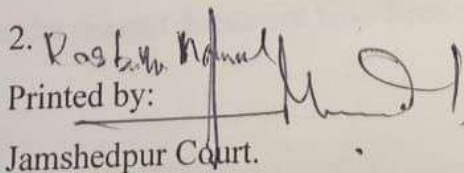 2.
Printed by:
Jamshedpur Court.